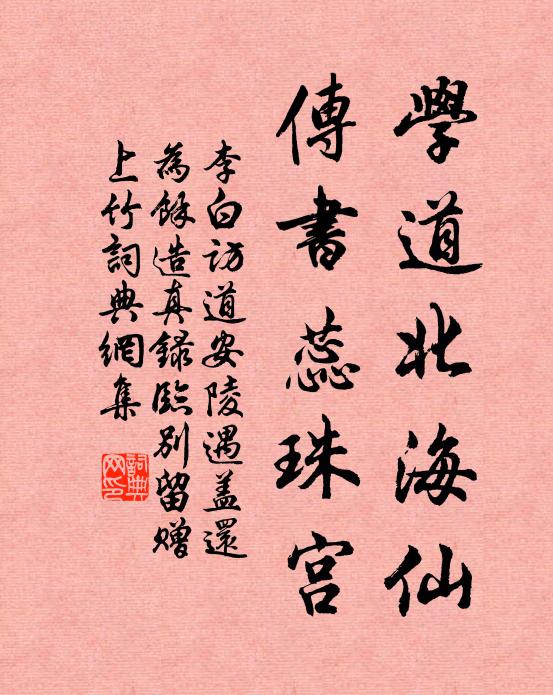 學道北海仙
傳書蕊珠宫
李白訪道安陵遇蓋還
為餘造真録臨别留贈
上竹詞典網集
詞典网印